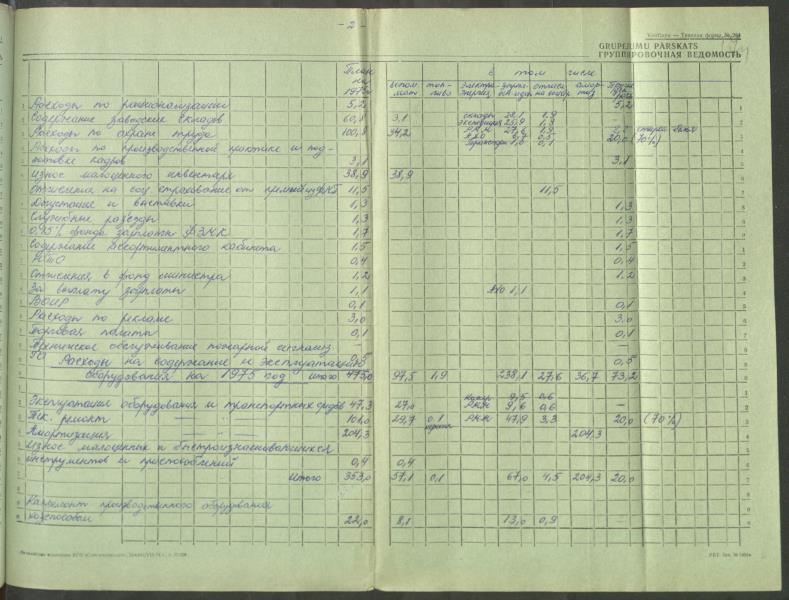 - 2 -
Veidlapa — Типовая форма № 284
GRUPĒJUMU PĀRSKATS
ГРУППИРОВОЧНАЯ ВЕДОМОСТЬ
План на 1975г. в том числе
вспом. мат топливо Электроэнергия зарплата отчисл. на соцстр аморт-аз Прочие
Расходы по рационализации 5,2 5,2
Содержание заводских складов 60,8 3,1 склады 28,1 1,9
экспедиция 25,9 1,3 —
Расходы по охране труда 100,8 34,2 РКН 27,6 1,9
20,0 (70%)
Транспорт 1,8 0,1
Расходы по производственной практике и под-
готовке кадров 3,1 3,1
Износ малоценного инвентаря 38,9 38,9
Отчисления на соц. страхование от премий из ФМП 11,5 11,5
Допустание и выставки 1,3 1,3
Служебные разъезды 1,3 1,3
0,95% фонда зарплаты ФЗМК 1,7 1,7
Содержание ассортиментного кабинета 1,5 1,5
НТО 0,4 0,4
Отчисления в фонд министра 1,2 1,2
За выплату зарплаты 1,1 1,1
ВОИР 0,1 0,1
Расходы по рекламе 3,0 3,0
Торговая палата 0,1 0,1
Техническое обслуживание пожарной сигнализ. —
ГО 0,5 0,5
Расходы на содержание и эксплуатацию
оборудования на 1975 год итого 475,0 97,5 1,9 238,1 27,6 36,7 73,2
Эксплуатация оборудования и транспортных средств 47,3 27,0 9,5 0,6
РКН 9,6 0,6 —
Тек. ремонт — — 101,0 29,7 0,1 РКН 47,9 3,3 20,0 (70%)
Амортизация — — 204,3 204,3
Износ малоценных и быстроизнашивающихся
инструментов и приспособлений 0,4 0,4
Итого 353,0 57,1 0,1 67,0 4,5 204,3 20,0
Капремонт производственного оборудования
хозспособом 22,0 8,1 13,0 0,9 —